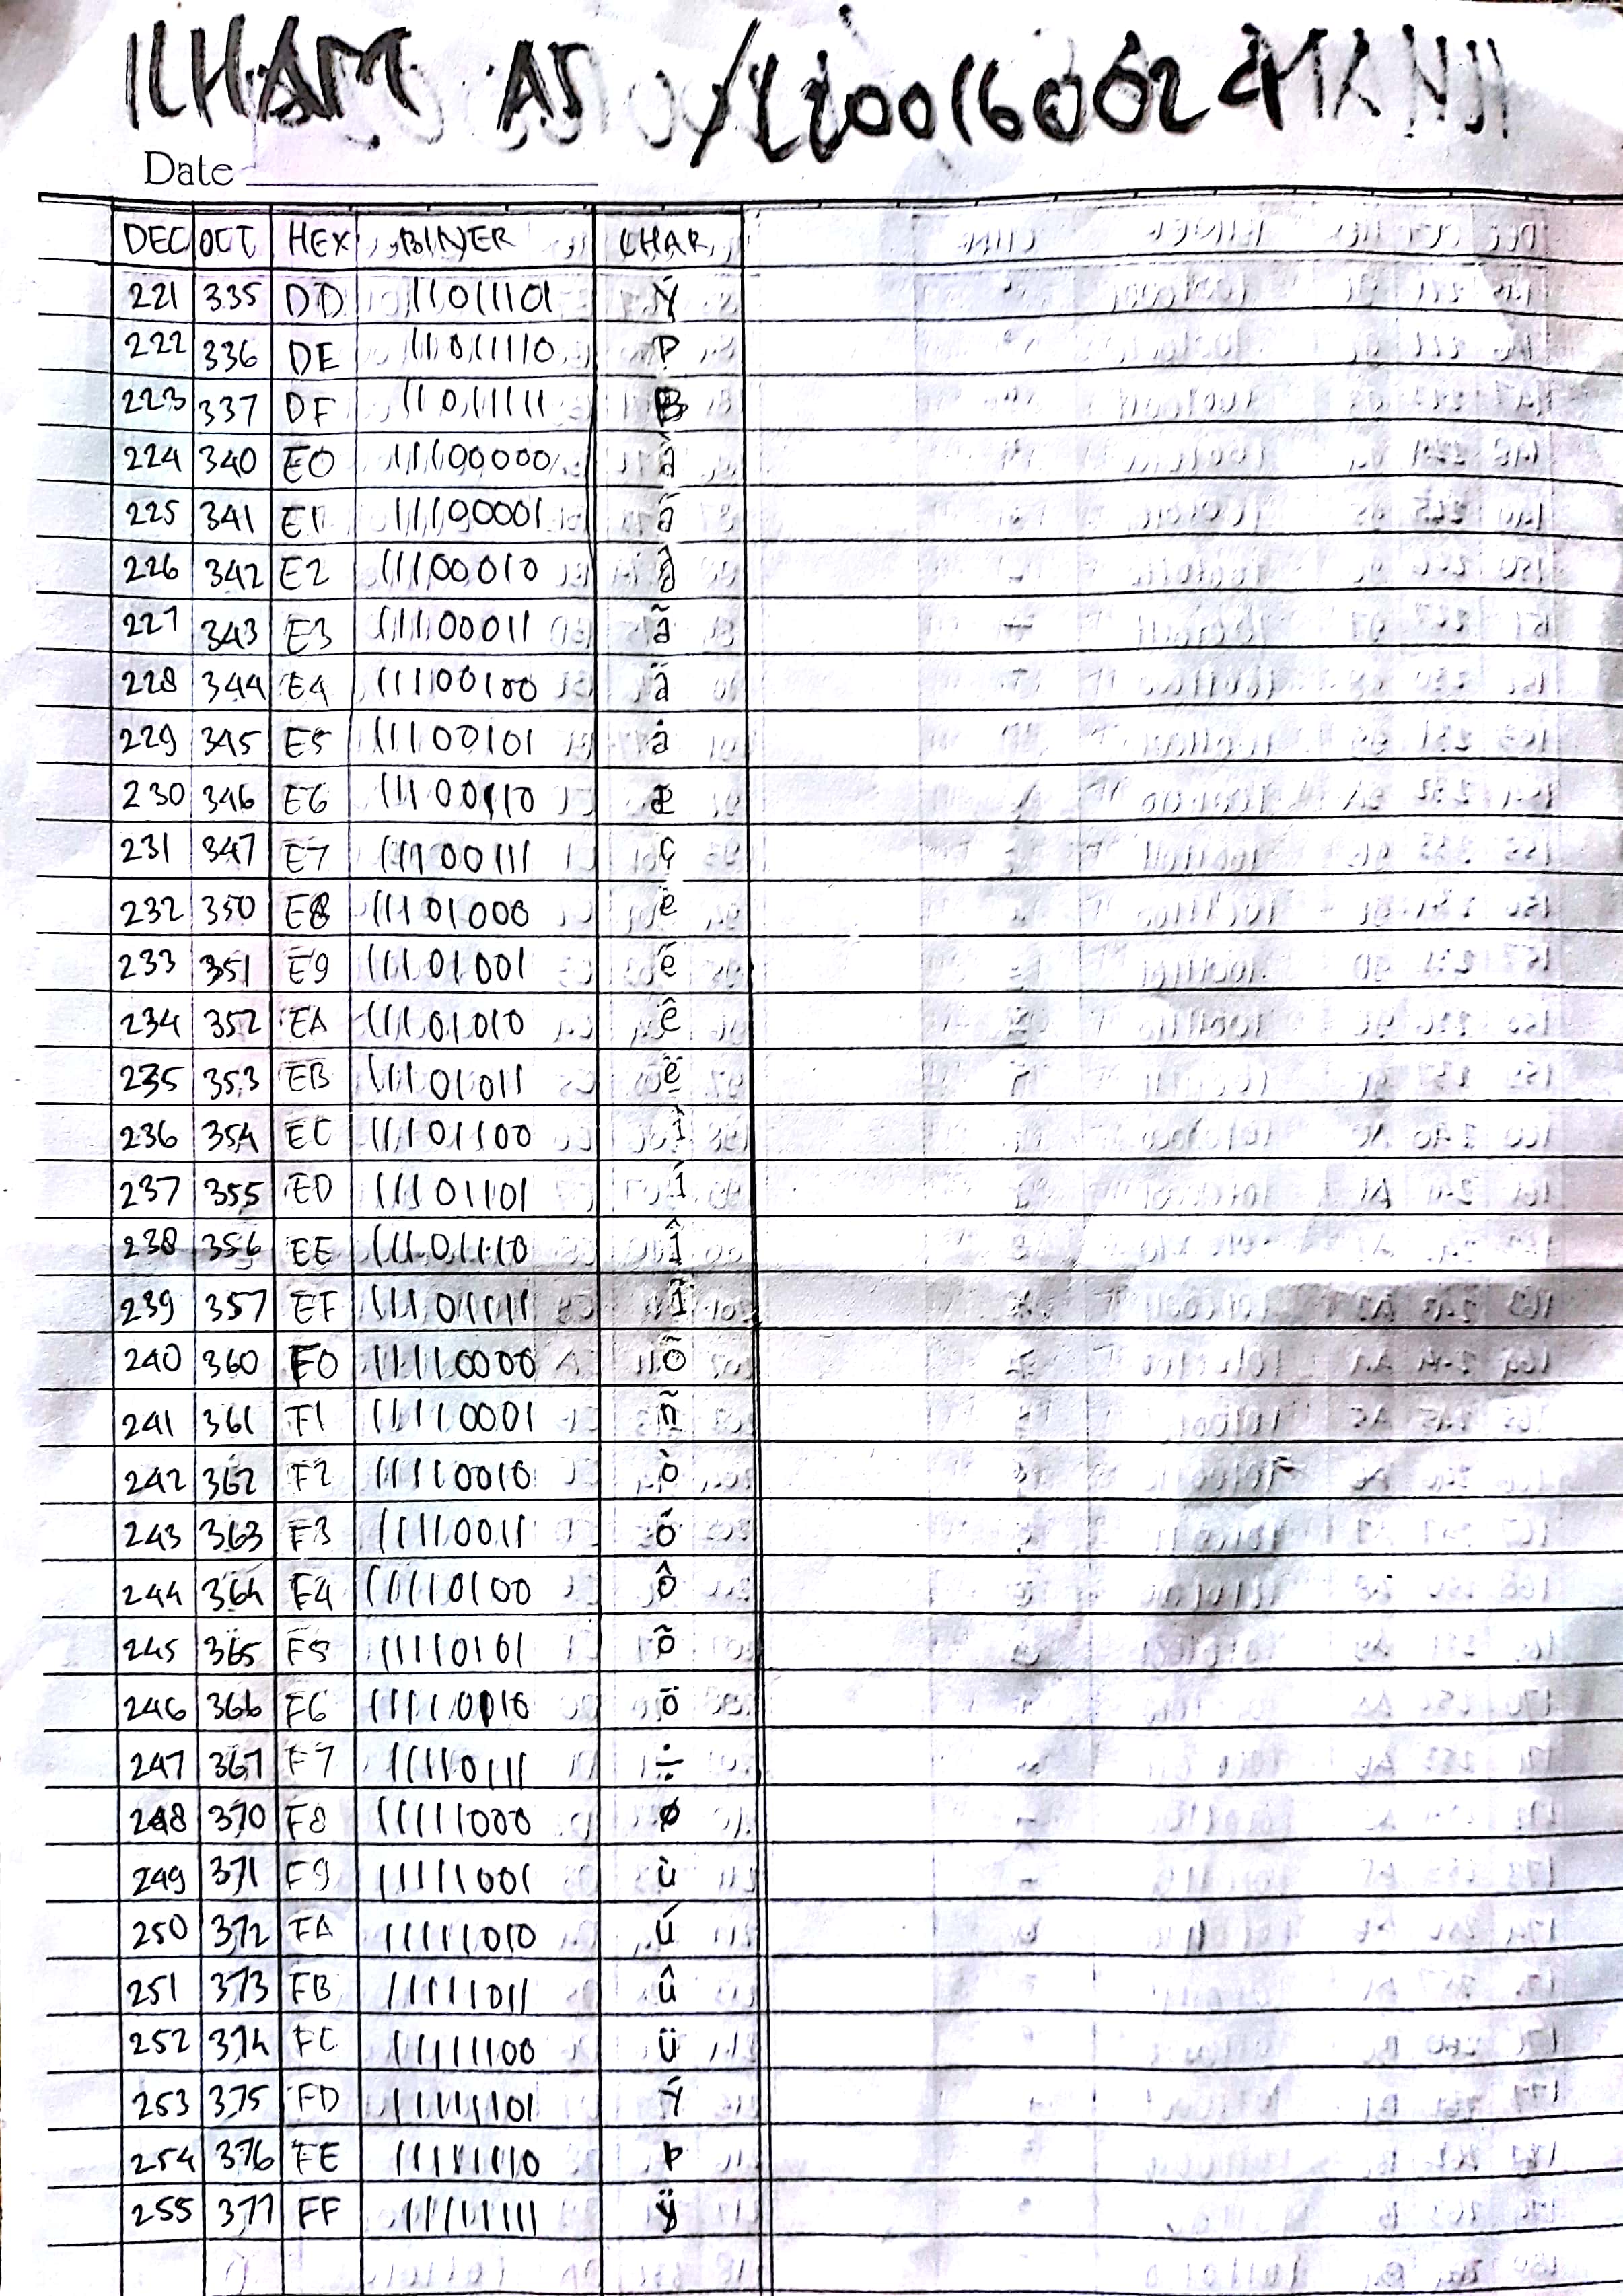 ILHAM AS / 2200160024
Date
DEC OCT HEX BINER CHAR
221 335 DD 11011101 Ý
222 336 DE 11011110 Þ
223 337 DF 11011111 ß
224 340 E0 11100000 à
225 341 E1 11100001 á
226 342 E2 11100010 â
227 343 E3 11100011 ã
228 344 E4 11100100 ä
229 345 E5 11100101 å
230 346 E6 11100110 æ
231 347 E7 11100111 ç
232 350 E8 11101000 è
233 351 E9 11101001 é
234 352 EA 11101010 ê
235 353 EB 11101011 ë
236 354 EC 11101100 ì
237 355 ED 11101101 í
238 356 EE 11101110 î
239 357 EF 11101111 ï
240 360 F0 11110000 õ
241 361 F1 11110001 ñ
242 362 F2 11110010 ò
243 363 F3 11110011 ó
244 364 F4 11110100 ô
245 365 F5 11110101 õ
246 366 F6 11110010 ö
247 367 F7 11110111 ÷
248 370 F8 11111000 ø
249 371 F9 11111001 ù
250 372 FA 11111010 ú
251 373 FB 11111011 û
252 374 FC 11111100 ü
253 375 FD 11111101 ý
254 376 FE 11111110 þ
255 377 FF 11111111 ÿ